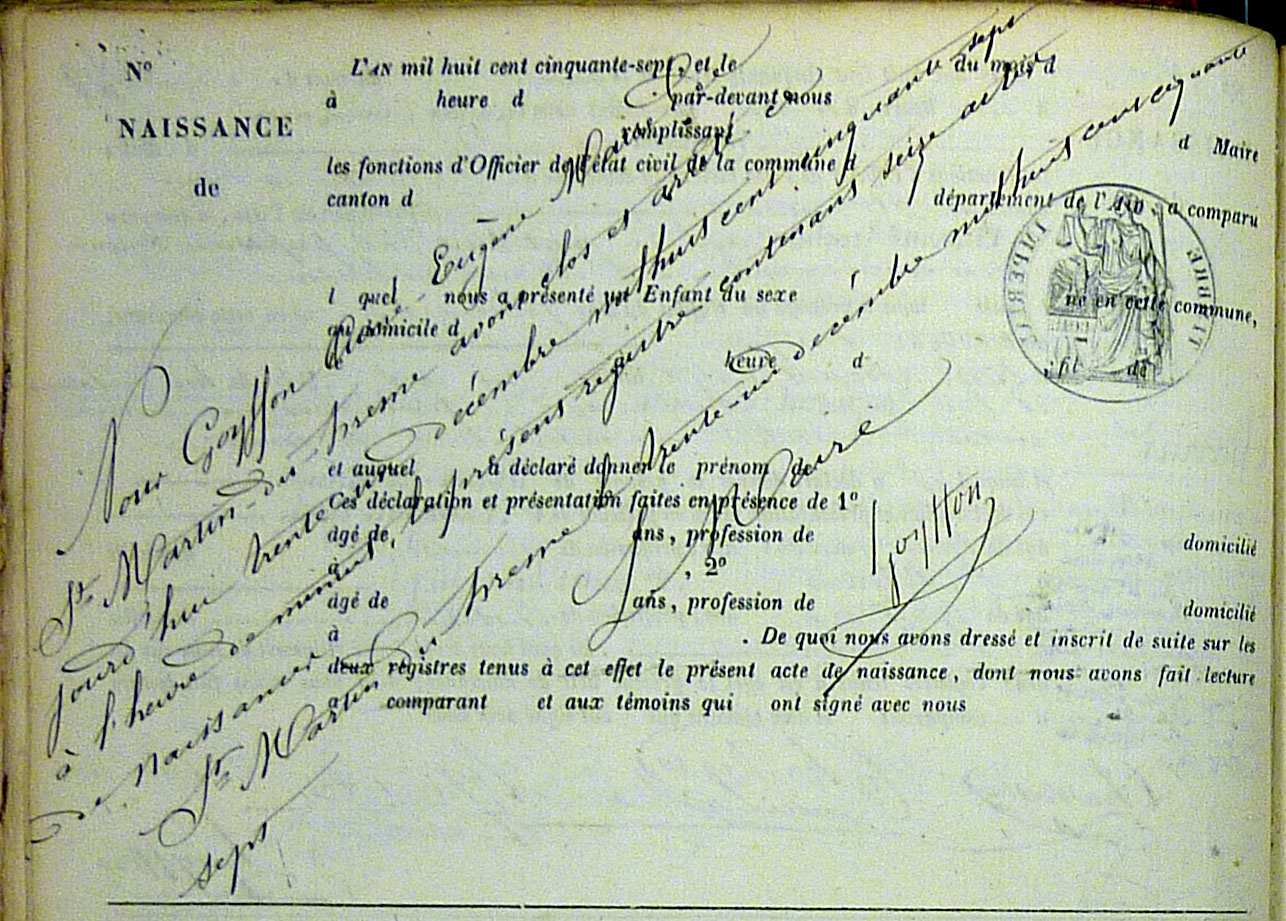 N°
NAISSANCE
de
L'AN mil huit cent cinquante-sept, et le du mois d
à heure d par-devant nous
remplissant
d Maire
les fonctions d'Officier de l'état civil de la commune d
canton d département de l'Ain, a comparu
l quel nous a présenté un Enfant du sexe né en cette commune,
au domicile d
heure d fil de
et auquel a déclaré donner le prénom de
Ces déclaration et présentation faites en présence de 1°
âgé de ans, profession de domicilié
à , 2°
âgé de ans, profession de domicilié
à . De quoi nous avons dressé et inscrit de suite sur les
deux registres tenus à cet effet le présent acte de naissance, dont nous avons fait lecture
au comparant et aux témoins qui ont signé avec nous
TIMBRE IMPERIAL
Nous Goyffon Eugène Maire de
St Martin-du-fresne avons clos et arrêté ce
jourd'hui trente un décembre mil huit cent cinquante sept
à l'heure de minuit, le présent registre contenant seize actes
de naissances
St Martin du fresne le trente-un décembre mil huit cent cinquante
sept
Le Maire
Goyffon